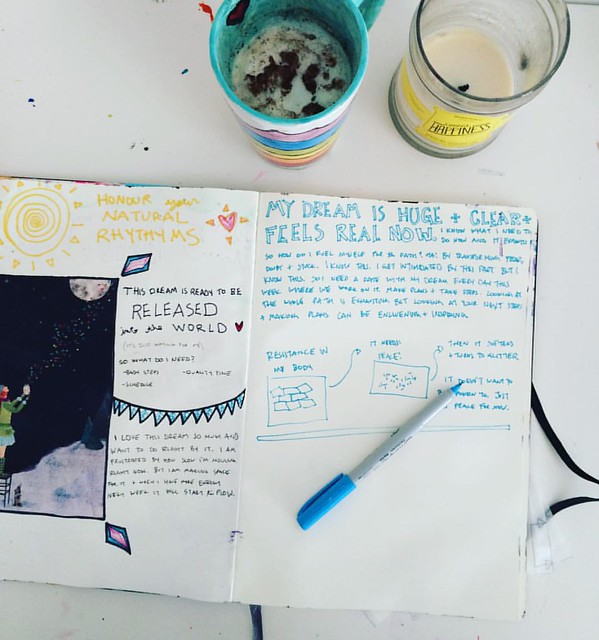 HAPPINESS
HONOUR your
NATURAL
RHYTHYMS
THIS DREAM IS READY TO BE
RELEASED
into the WORLD
(IT'S JUST WAITING FOR ME)
SO WHAT DO I NEED?
- BABY STEPS - QUALITY TIME
- SCHEDULE
I LOVE THIS DREAM SO MUCH AND
WANT TO DO RIGHT BY IT. I AM
FRUSTRATED BY HOW SLOW I'M MOVING
RIGHT NOW. BUT I AM MAKING SPACE
FOR IT + WHEN I HAVE MORE ENERGY
NEXT WEEK IT WILL START TO FLOW.
MY DREAM IS HUGE + CLEAR +
FEELS REAL NOW. I KNOW WHAT I NEED TO
DO NOW AND IT
SO HOW DO I FUEL MYSELF FOR THE PATH?
DOUBT + I KNOW THIS. I GET INTIMIDATED BY THIS PART BUT I
KNOW THIS. SO I NEED A DATE WITH MY DREAM EVERY DAY THIS
WEEK WHERE WE WORK ON IT. MAKE PLANS + TAKE STEPS. LOOKING AT
THE WHOLE PATH IS EXHAUSTING BUT LOOKING AT YOUR NEXT STEPS
+ MAKING PLANS CAN BE ENLIVENING + INSPIRING.
RESISTANCE IN
MY BODY
IT NEEDS
PEACE!
THEN IT SOFTENS
+ TURNS TO GLITTER
IT DOESN'T WANT TO
JUST
PEACE FOR NOW.